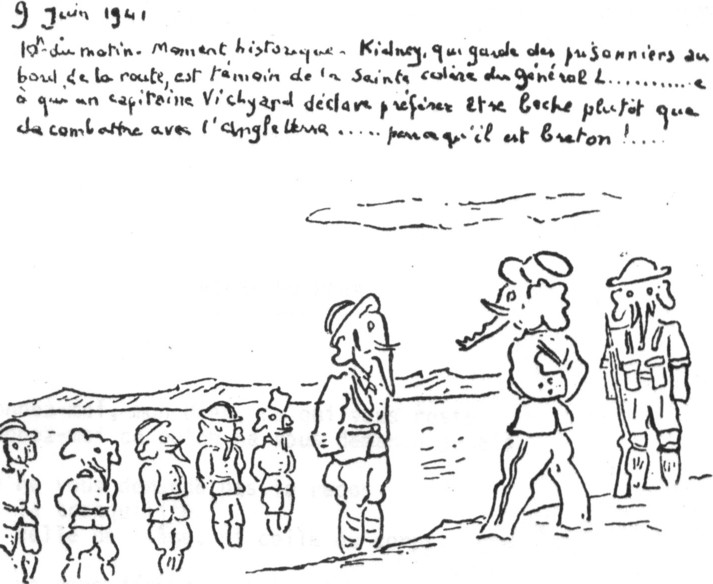 9 Juin 1941
10h du matin. Moment historique. Kidney, qui garde des prisonniers au
bord de la route, est témoin de la Sainte colère du général L...........e
à qui un capitaine Vichyard déclare préférer être boche plutôt que
de combattre avec l'Angleterre ..... parce qu'il est breton !....